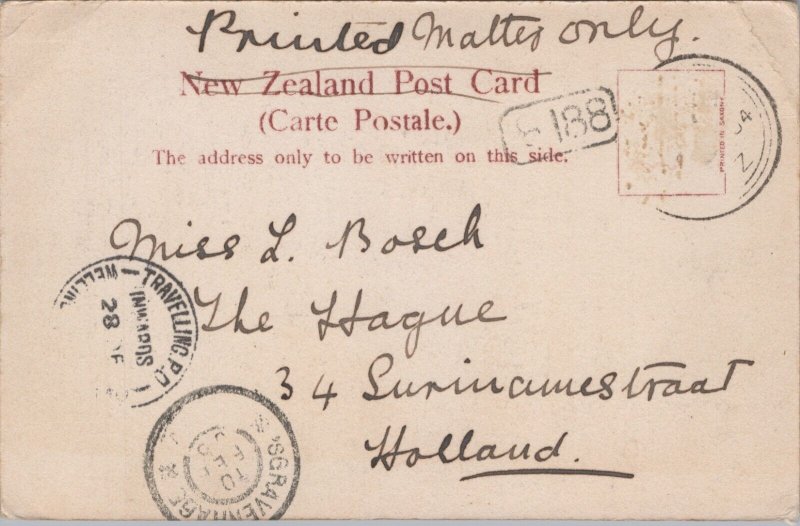 Printed Matter only.
New Zealand Post Card
(Carte Postale.)
The address only to be written on this side.
188
PRINTED IN SAXONY
04
Z
Miss L. Bosch
The Hague
34 Surinamestraat
Holland.
TRAVELLING. P.O.
INWARDS
28
'SGRAVENHAGE